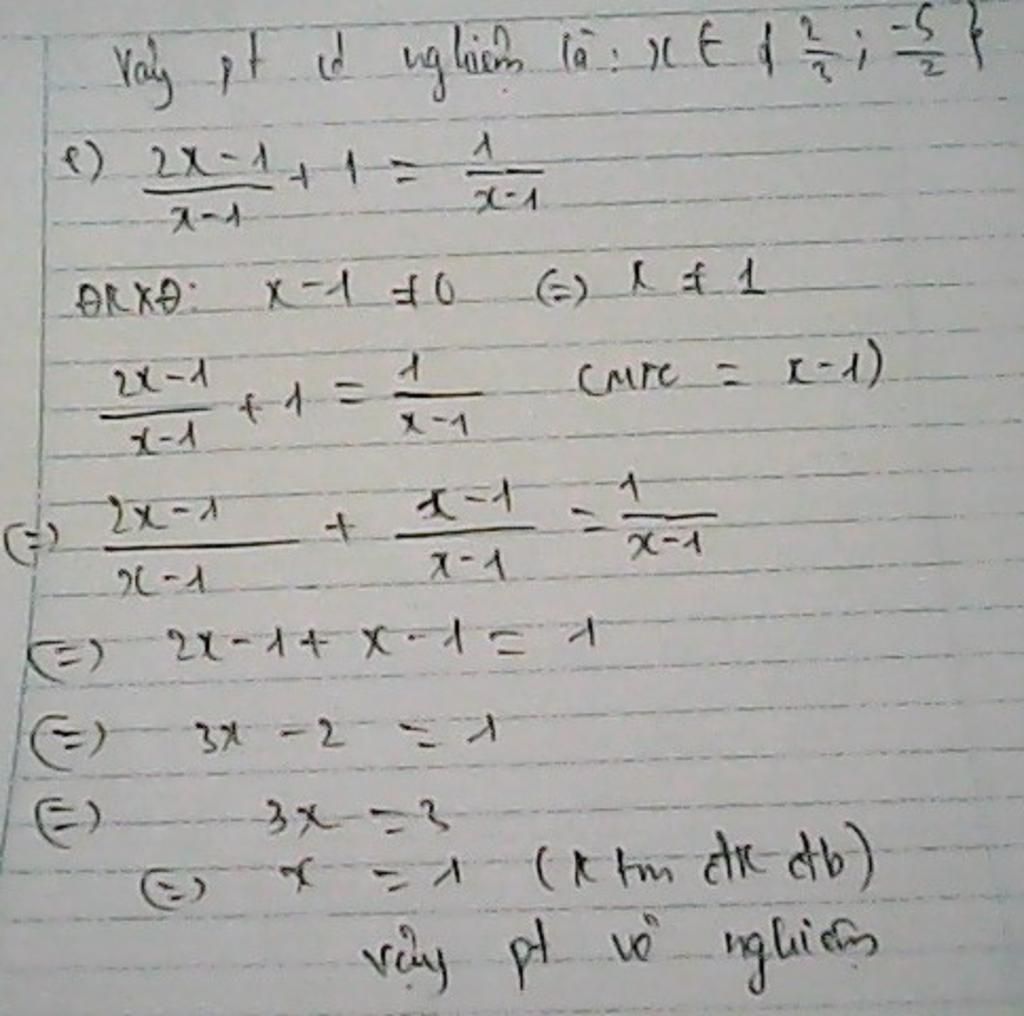 Vậy pt có nghiệm là: x ∈ { 2/3 ; -5/2 }
e) (2x-1)/(x-1) + 1 = 1/(x-1)
ĐKXĐ: x-1 ≠ 0 (=) x ≠ 1
(2x-1)/(x-1) + 1 = 1/(x-1) (MTC = x-1)
(=) (2x-1)/(x-1) + (x-1)/(x-1) = 1/(x-1)
(=) 2x-1+x-1 = 1
(=) 3x-2 = 1
(=) 3x = 3
(=) x = 1 (k tm đk đb)
vậy pt vô nghiệm